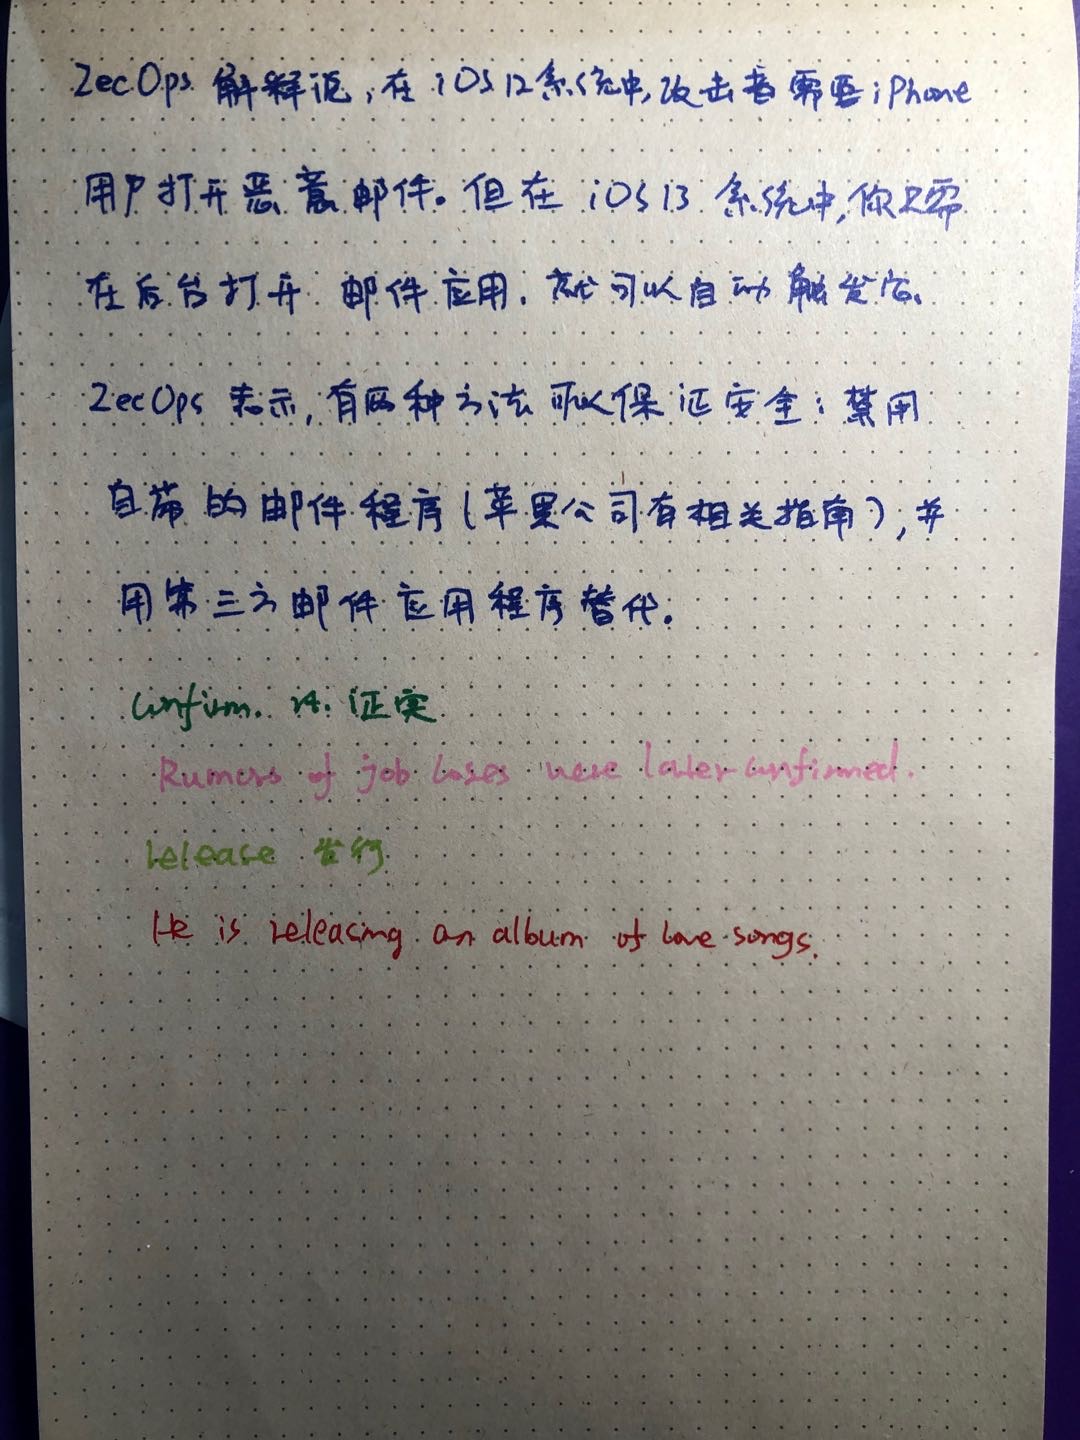 ZecOps 解释说,在 iOS 12系统中,攻击者需要 iPhone
用户打开恶意邮件。但在 iOS 13 系统中,你只需
在后台打开 邮件应用,就可以自动触发它。
ZecOps 表示,有两种方法可以保证安全:禁用
自带的邮件程序(苹果公司有相关指南),并
用第三方邮件应用程序替代。
Confirm. vt. 证实
Rumors of job loses were later confirmed.
release 发行
He is releasing an album of love songs.